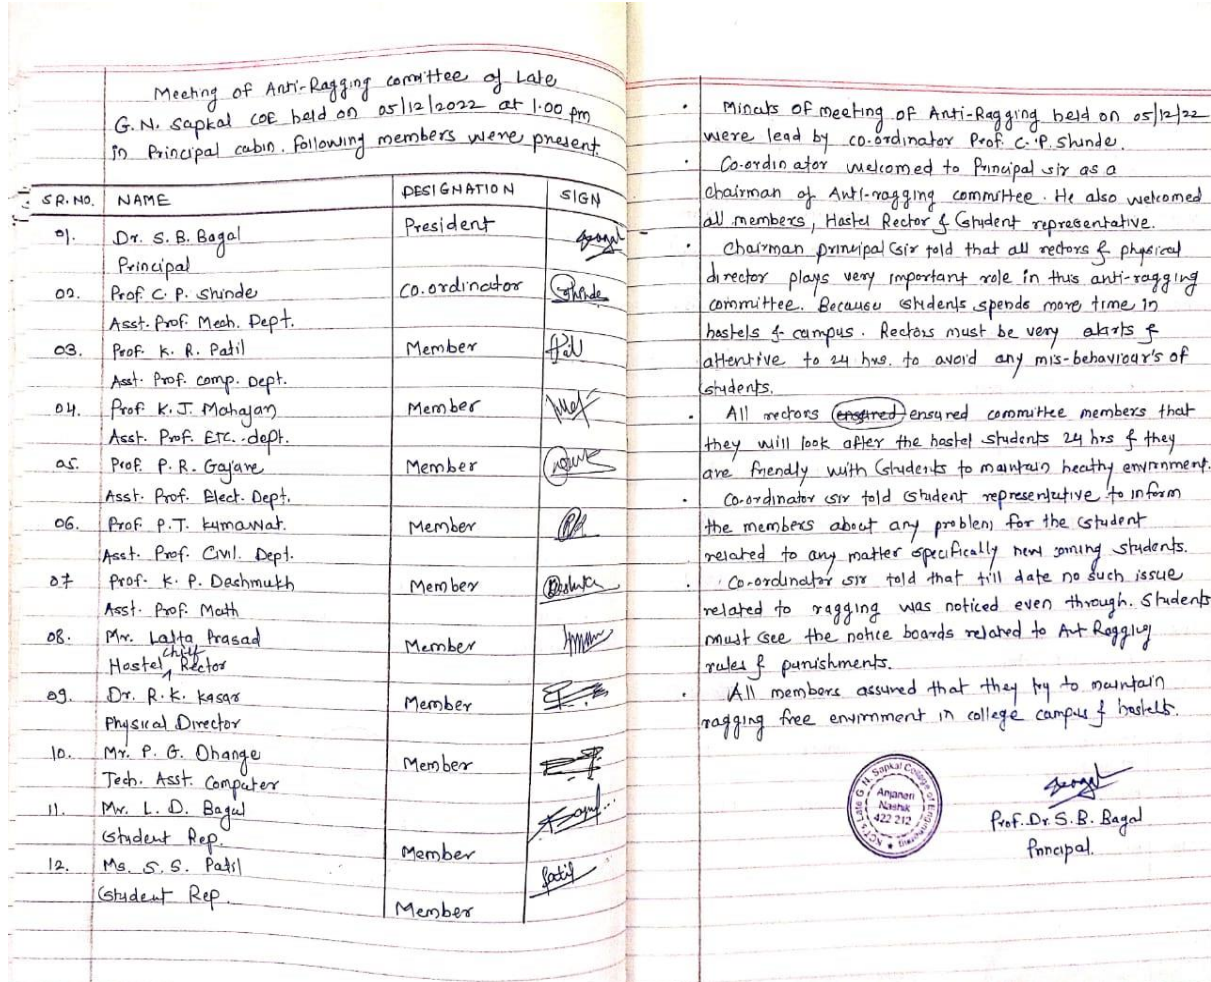 Meeting of Anti-Ragging comittee of Late
G.N. Sapkal COE held on 05/12/2022 at 1.00 pm
in Principal cabin. following members were present.
SR.NO. NAME DESIGNATION SIGN
01. Dr. S. B. Bagal President
Principal
02. Prof. C. P. Shinde Co.ordinator
Asst. Prof. Mech. Dept.
03. Prof. K. R. Patil Member
Asst. Prof. comp. Dept.
04. Prof K. J. Mahajan Member
Asst. Prof. ETC. dept.
05. Prof. P. R. Gajare Member
Asst. Prof. Elect. Dept.
06. Prof. P.T. Kumawat. Member
Asst. Prof. Civil. Dept.
07 Prof. K. P. Deshmukh Member
Asst. Prof. Math
08. Mr. Lalta Prasad Member
Hostel chief Rector
09. Dr. R. K. Kasar Member
Physical Director
10. Mr. P. G. Dhange Member
Tech. Asst. Computer
11. Mr. L. D. Bagul
Student Rep. Member
12. Ms. S. S. Patil
Student Rep. Member
• Minuts of meeting of Anti-Ragging held on 05/12/22
were lead by co.ordinator Prof. C. P. Shinde.
• Co-ordinator welcomed to Principal sir as a
chairman of Anti-ragging committee. He also welcomed
all members, Hostel Rector & Student representative.
• Chairman principal sir told that all rectors & physical
director plays very important role in this anti-ragging
committee. Because students spends more time in
hostels & campus. Rectors must be very alerts &
attentive to 24 hrs. to avoid any mis-behaviour's of
students.
• All rectors ensured committee members that
they will look after the hostel students 24 hrs & they
are friendly with students to maintain heathy envirnment.
• Co-ordinator sir told student representative to inform
the members about any problem for the student
related to any matter specifically new coming students.
• Co-ordinator sir told that till date no such issue
related to ragging was noticed even through. Students
must see the notice boards related to Ragging
rules & punishments.
• All members assured that they try to maintain
ragging free envirnment in college campus & hostels.
Prof. Dr. S. B. Bagal
Principal.
Late G. N. Sapkal College of Engineering
Anjaneri
Nashik
422 212